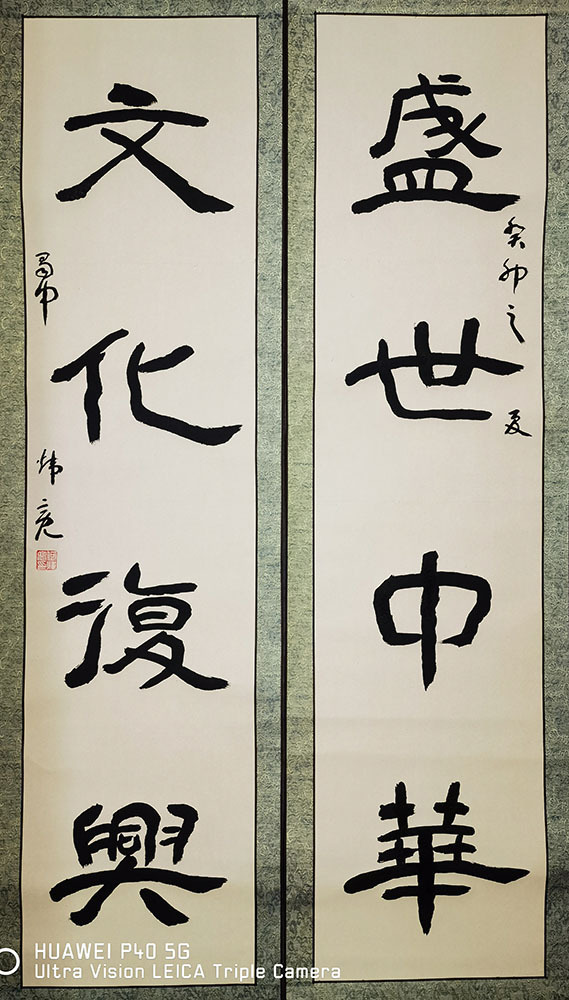 盛世中華
癸卯之夏
文化復興
蜀中
炜亮
HUAWEI P40 5G
Ultra Vision LEICA Triple Camera